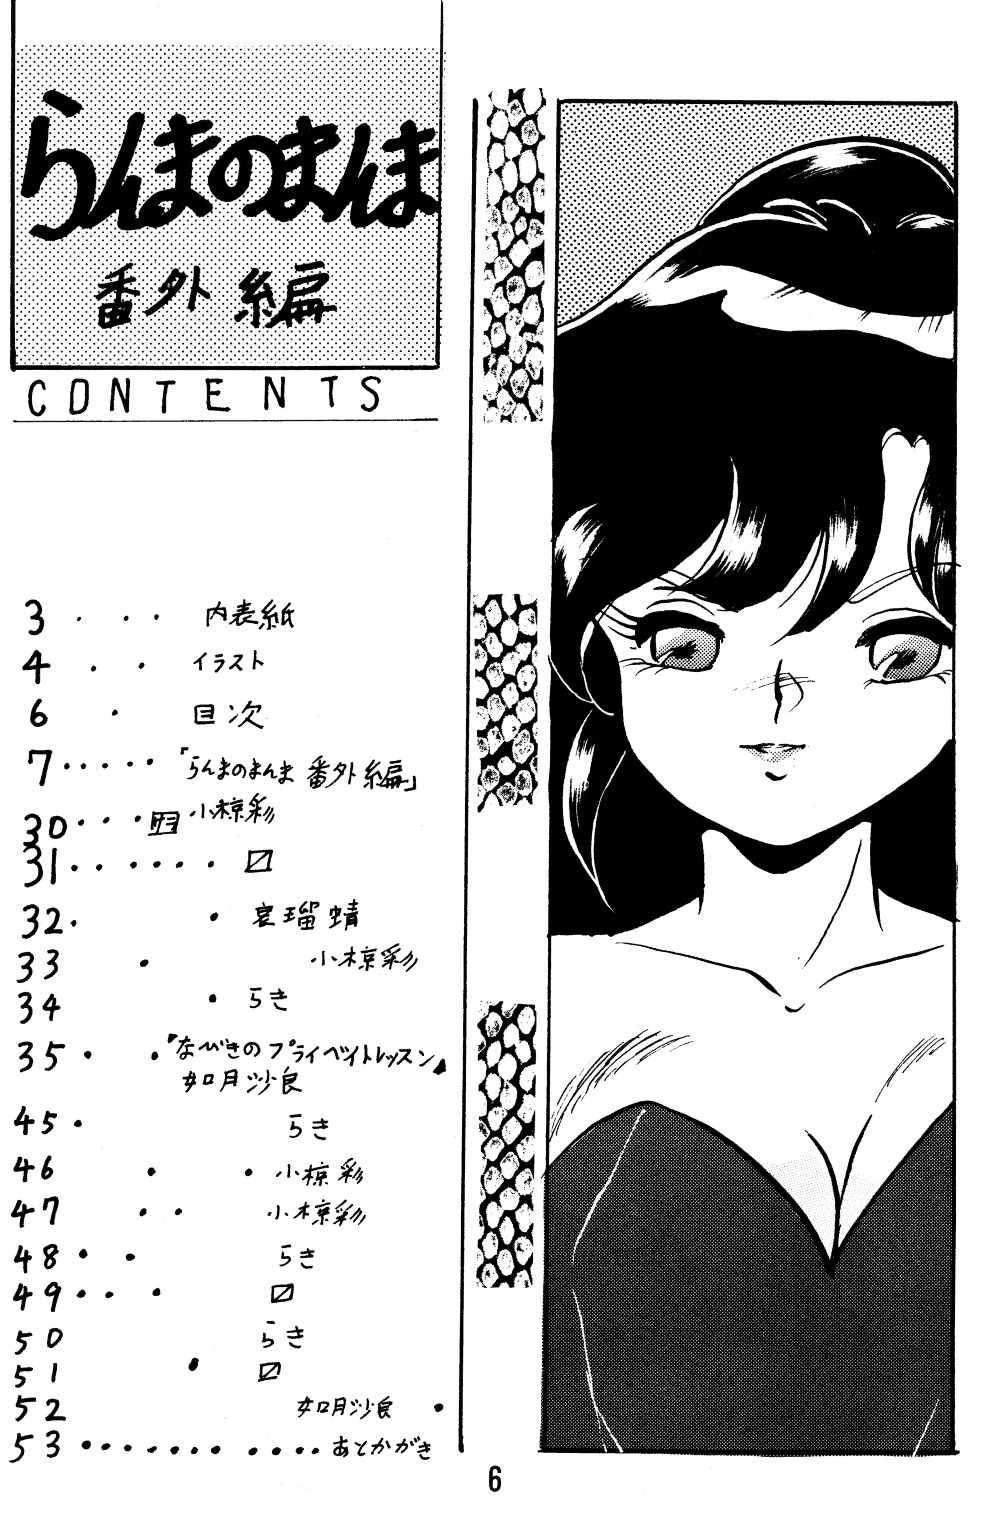 らんまのまんま
番外編
CONTENTS
3 ・・・ 内表紙
4 ・・ イラスト
6 ・ 目次
7 ・・・・・ 「らんまのまんま 番外編」
小椋彩
30 ・・・
31 ・・・・・・ 〼
32 ・ ・ 哀瑠蜻
33 ・ 小椋彩
34 ・ らき
35 ・ ・ 「なびきのプライベイトレッスン」
如月沙良
45 ・ らき
46 ・ ・ 小椋彩
47 ・・ 小椋彩
48 ・ ・ らき
49 ・・ ・ 〼
50 らき
51 ・ 〼
52 如月沙良 ・
53 ・・・・・・・ ・・・・ あとかがき
6